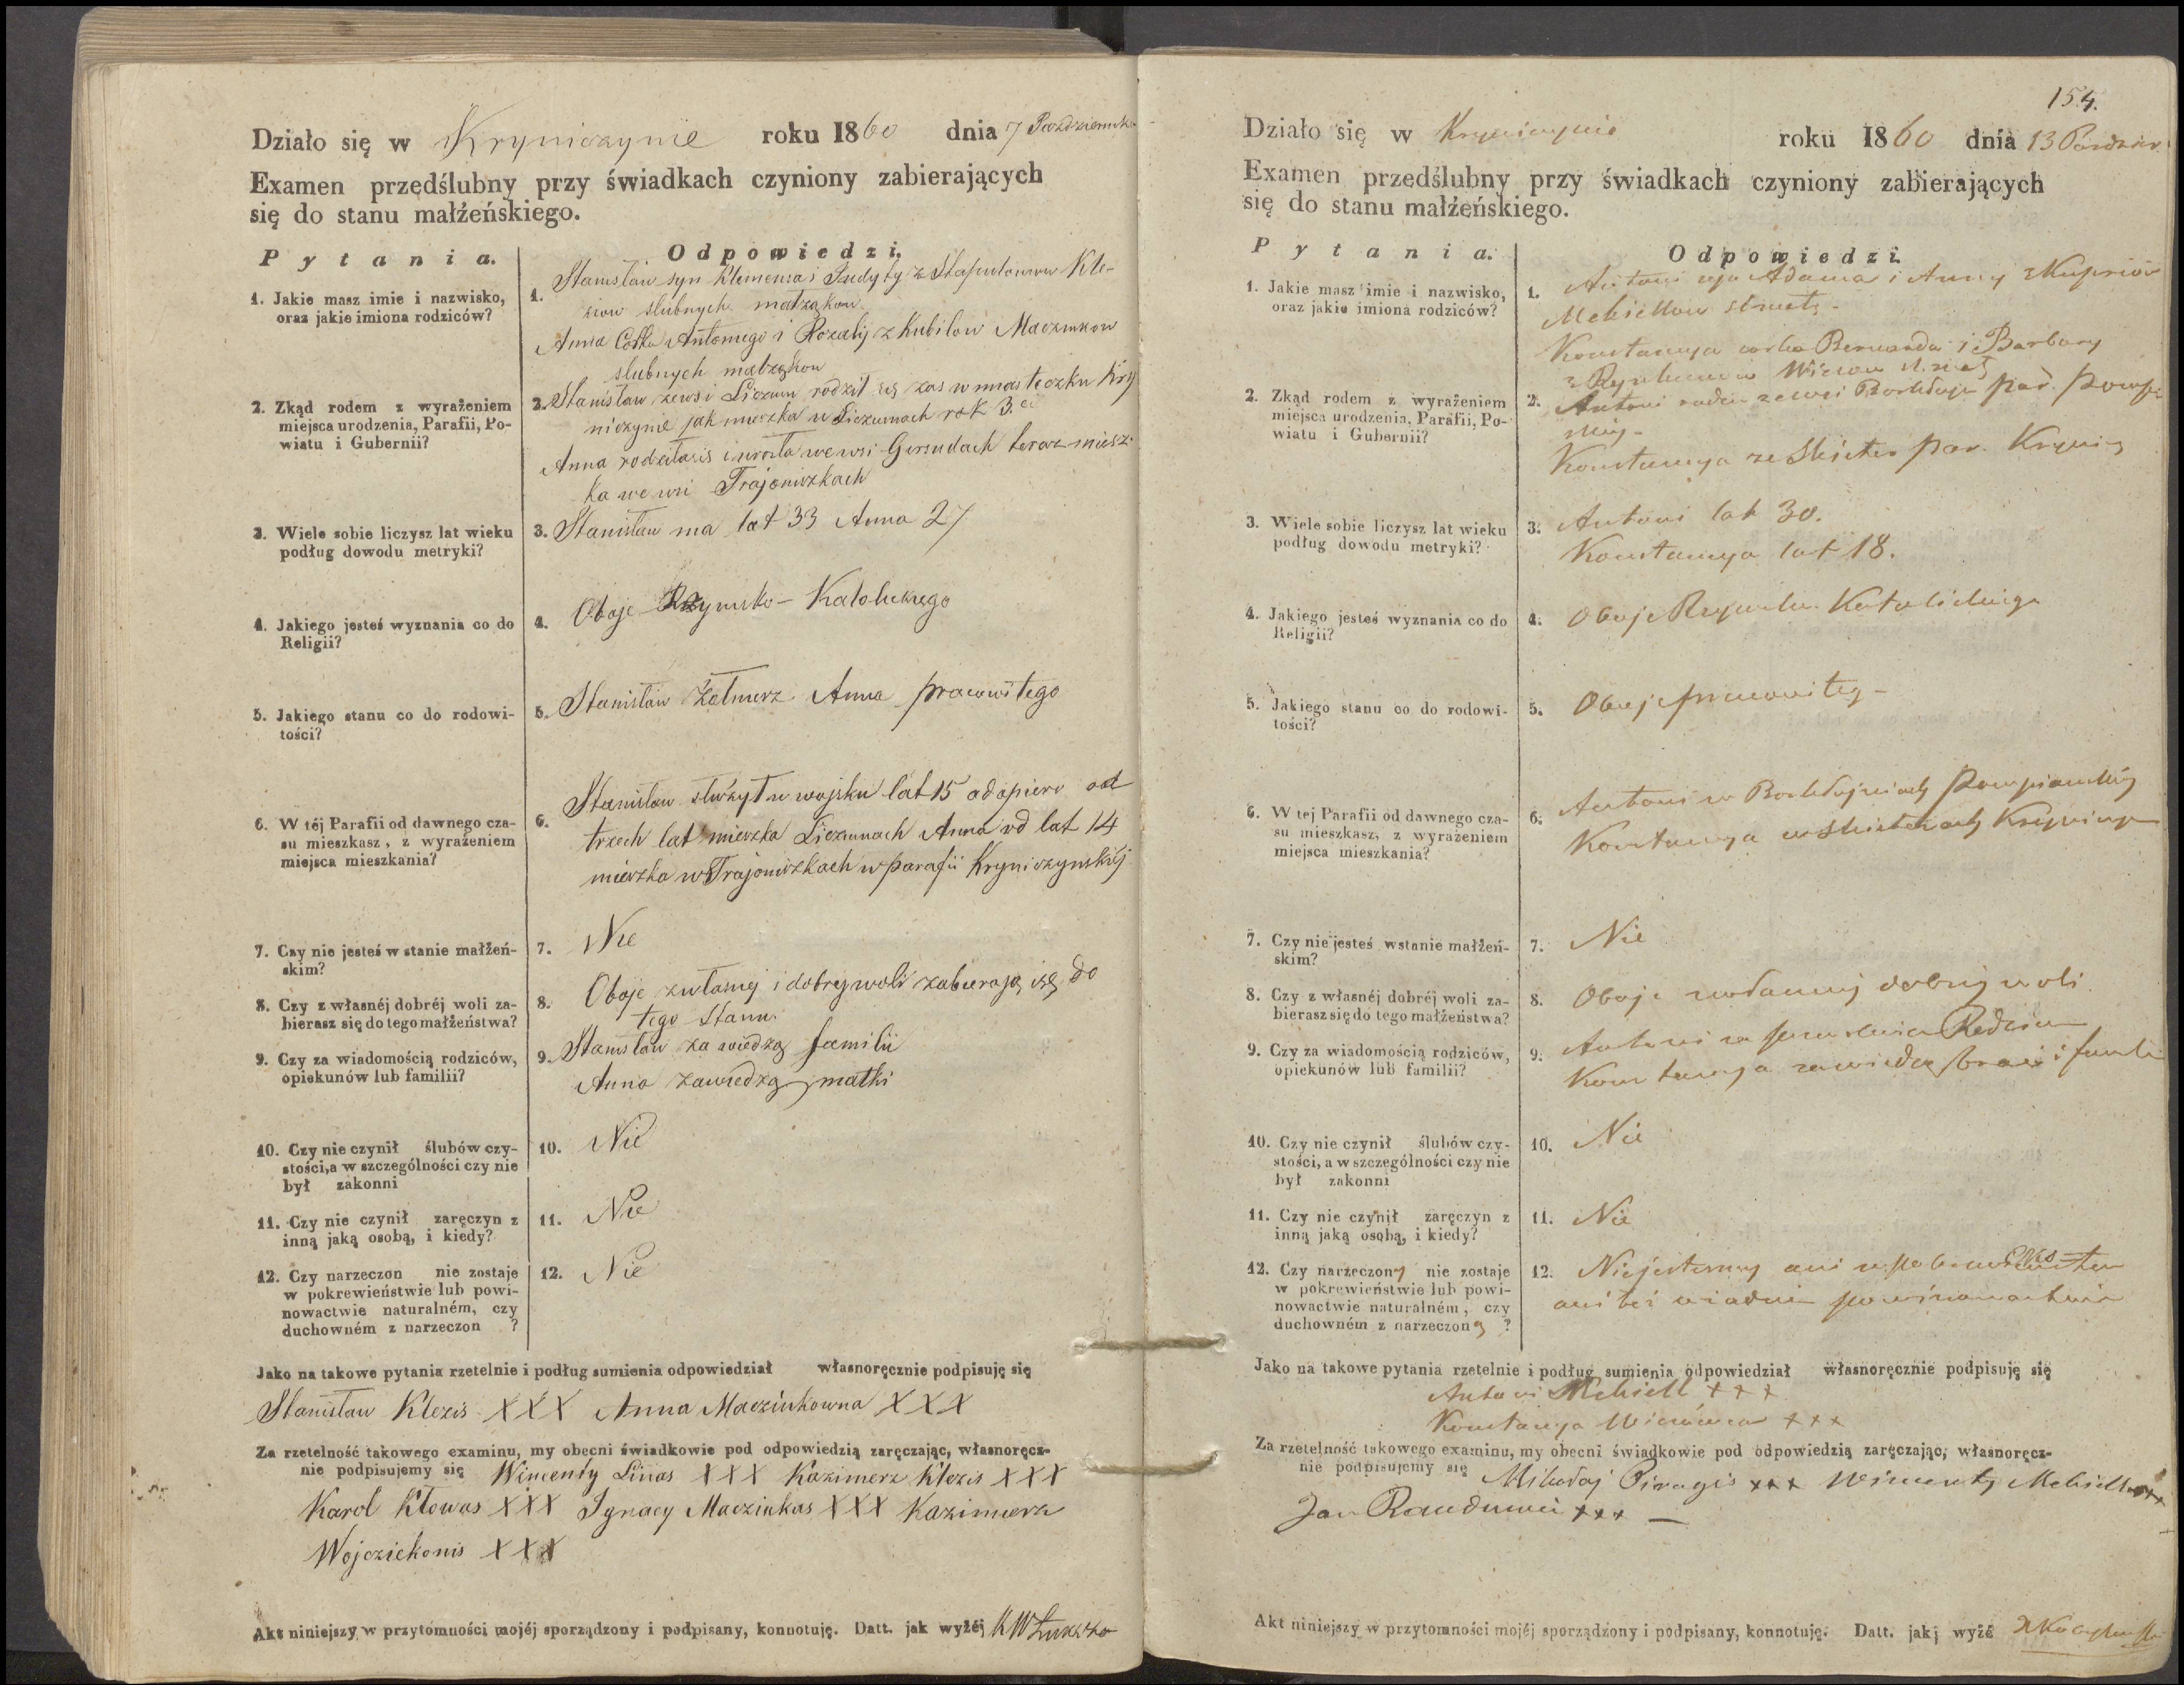 Działo się w Kryniczynie roku 1860 dnia 7 Pazdziernika
Examen przedślubny przy świadkach czyniony zabierających
się do stanu małżeńskiego.
Pytania. Odpowiedzi.
1. Jakie masz imie i nazwisko,
oraz jakie imiona rodziców?
1. Stanisław syn Klemensa i Judyty z Kle-
ziow slubnych małząkow
Anna Corka Antoniego i Rozalij z Kubilow Maczinkow
slubnych małząkow
2. Zkąd rodem z wyrażeniem
miejsca urodzenia, Parafii, Po-
wiatu i Gubernii?
2. Stanisław zewsi Liczun rodził się zas w miasteczku Kry
niczynie jak mieszka w Liczunach rok 3.ci
Anna rodziłasię i urosła we wsi Girsudach teraz miesz-
ka we wsi Trajoniszkach
3. Wiele sobie liczysz lat wieku
podług dowodu metryki?
3. Stanisław ma lat 33 Anna 27
4. Jakiego jesteś wyznania co do
Religii?
4. Oboje Rzymsko-Katolickiego
5. Jakiego stanu co do rodowi-
tości?
5. Stanisław Żołnierz Anna pracowitego
6. W téj Parafii od dawnego cza-
su mieszkasz, z wyrażeniem
miejsca mieszkania?
6. Stanisław służył w wojsku lat 15 a dopiero od
trzech lat mieszka Liczunach Anna od lat 14
mieszka w Trajoniszkach w parafii Kryniczynskiéj
7. Czy nie jesteś w stanie małżeń-
skim?
7. Nie
8. Czy z własnéj dobréj woli za-
bierasz się do tego małżeństwa?
8. Oboje zwłasnej i dobrej woli zabierają się do
tego Stanu.
9. Czy za wiadomością rodziców,
opiekunów lub familii?
9. Stanisław za wiedzą familii
Anna zawiedzą matki
10. Czy nie czynił ślubów czy-
stości, a w szczególności czy nie
był zakonni
10. Nie
11. Czy nie czynił zaręczyn z
inną jaką osobą, i kiedy?
11. Nie
12. Czy narzeczon nie zostaje
w pokrewieństwie lub powi-
nowactwie naturalném, czy
duchowném z narzeczon ?
12. Nie
Jako na takowe pytania rzetelnie i podług sumienia odpowiedział własnoręcznie podpisuję się
Stanisław Klezis XXX Anna Maczinkowna XXX
Za rzetelność takowego examinu, my obecni świadkowie pod odpowiedzią zaręczając, własnoręcz-
nie podpisujemy się Wincenty Linas XXX Kazimierz Klezis XXX
Karol Kłowas XXX Ignacy Maczinkas XXX Kazimierz
Wojcziekonis XXX
Akt niniejszy w przytomności mojéj sporządzony i podpisany, konnotuję. Datt. jak wyżéj
154.
Działo się w Kryniczynie roku 1860 dnia 13 Pazdzier.
Examen przedślubny przy świadkach czyniony zabierających
się do stanu małżeńskiego.
Pytania. Odpowiedzi.
1. Jakie masz imie i nazwisko,
oraz jakie imiona rodziców?
1. Antoni syn Adama i Anny z Kuprów
Konstancya corka Bernarda i Barbary
2. Zkąd rodem z wyrażeniem
miejsca urodzenia, Parafii, Po-
wiatu i Gubernii?
2. Antoni rodem zewsi par.
Konstancya ze par. Krynicz
3. Wiele sobie liczysz lat wieku
podług dowodu metryki?
3. Antoni lat 30.
Konstancya lat 18.
4. Jakiego jesteś wyznania co do
Religii?
4. Oboje Rzymsko Katolickiego
5. Jakiego stanu co do rodowi-
tości?
5. Oboje pracowiteg-
6. W tej Parafii od dawnego cza-
su mieszkasz, z wyrażeniem
miejsca mieszkania?
6. Antoni w
Konstancya w
7. Czy nie jesteś wstanie małżeń-
skim?
7. Nie
8. Czy z własnéj dobréj woli za-
bierasz się do tego małżeństwa?
8. Oboje zwłasnnej dobrej woli
9. Czy za wiadomością rodziców,
opiekunów lub familii?
9. Antoni za
Konstancya zawiedzą braci i famili
10. Czy nie czynił ślubów czy-
stości, a w szczególności czy nie
był zakonni
10. Nie
11. Czy nie czynił zaręczyn z
inną jaką osobą, i kiedy?
11. Nie
12. Czy narzeczony nie zostaje
w pokrewieństwie lub powi-
nowactwie naturalném, czy
duchowném z narzeczoną ?
12. Niejestesmy ani w
ani też w żadnem powinowactwie
Jako na takowe pytania rzetelnie i podług sumienia odpowiedział własnoręcznie podpisuję się
Antoni Mekiell +++
Konstancya +++
Za rzetelność takowego examinu, my obecni świadkowie pod odpowiedzią zaręczając, własnoręcz-
nie podpisujemy się Mikołaj Piragis xxx Wincenty
Jan xxx
Akt niniejszy w przytomności mojéj sporządzony i podpisany, konnotuję. Datt. jakj wyżé